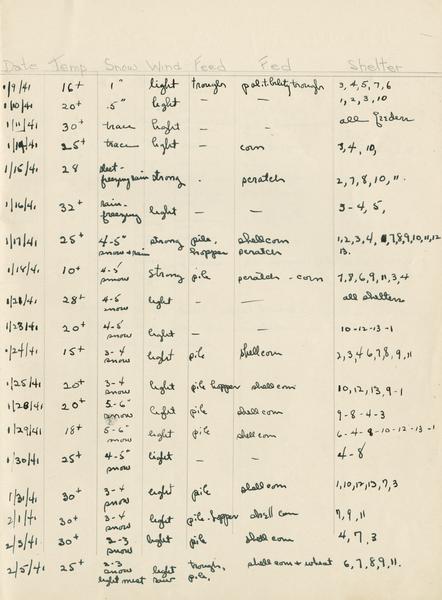 Date Temp Snow Wind Feed Fed Shelter
1/9/41 16+ 1" light trough 3, 4, 5, 7, 6
1/10/41 20+ .5" light — — 1, 2, 3, 10
1/11/41 30+ trace light — — all feeders
25+ trace light — corn 3, 4, 10,
1/15/41 28 sleet-
freezing rain strong . scratch 2, 7, 8, 10, 11.
1/16/41 32+ rain-
freezing light — — 3-4, 5,
1/17/41 25+ 4-5" strong pile, shellcorn 1, 2, 3, 4, 7, 8, 9, 10, 11, 12
snow + rain hopper scratch 13.
1/18/41 10+ 4-5" strong pile scratch - corn 7, 8, 6, 9, 11, 3, 4
snow
28+ 4-5 light - — all shelters
snow
1/23/41 20+ 4-5 light — 10-12-13-1
snow
1/24/41 15+ 3-4 light pile shellcorn 2, 3, 4, 6, 7, 8, 9, 11
snow
1/25/41 20+ 3-4 light pile hopper shell corn 10, 12, 13, 9-1
snow
1/28/41 20+ 5-6" light pile shell corn 9-8-4-3
snow
1/29/41 18+ 5-6" light pile shell corn 6-4-8-10-12-13-1
snow
1/30/41 25+ 4-5" light — — 4-8
snow
1/31/41 30+ 3-4 light pile shell corn 1, 10, 12, 13, 7, 3
snow
2/1/41 30+ 3-4 light pile-hopper shell corn 7, 9, 11
snow
2/3/41 30+ 2-3 light pile shell corn 4, 7, 3
snow
2/5/41 25+ 2-3 light trough, shell corn + wheat 6, 7, 8, 9, 11.
snow pile,
light